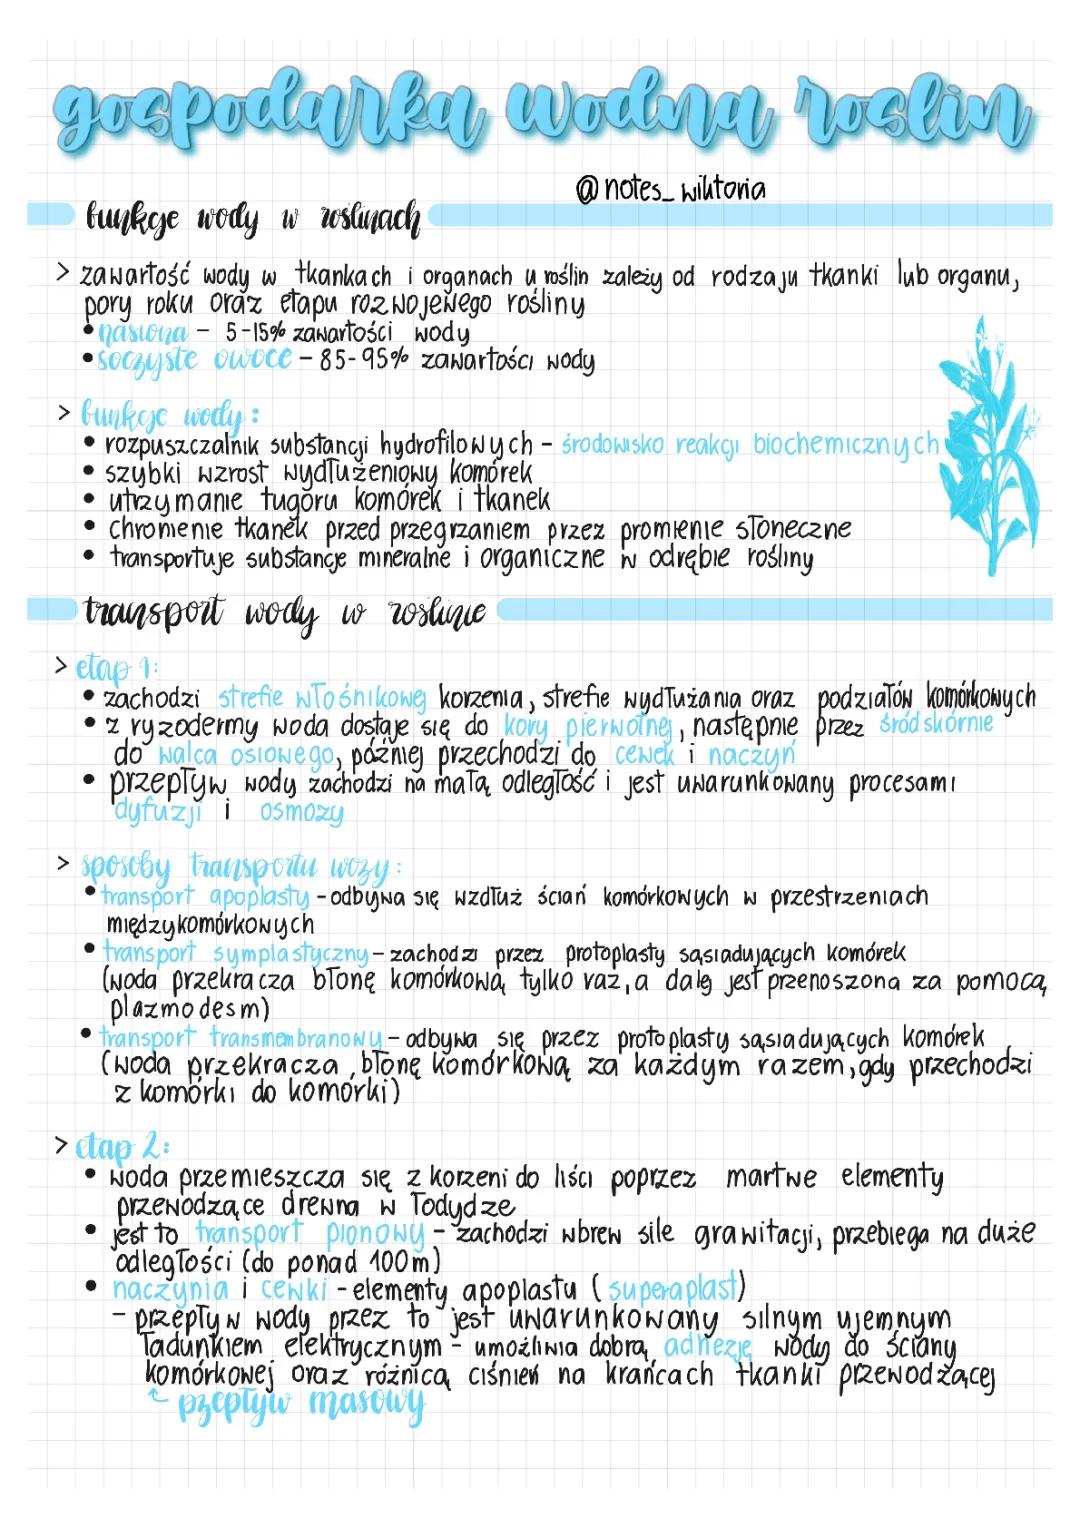 gospodarka wodna roślin
@notes_wiktoria
funkcje wody w roślinach
> zawartość wody w tkankach i organach u roślin zależy od rodzaju tkanki lub organu,
pory roku oraz etapu rozwojewego rośliny
• nasiona - 5-15% zawartości wody
• soczyste owoce - 85-95% zawartości wody
> funkcje wody:
• rozpuszczalnik substancji hydrofilowych - środowisko reakcji biochemicznych
• szybki wzrost wydłużeniowy komórek
• utrzymanie tugoru komórek i tkanek
• chronienie tkanek przed przegrzaniem przez promienie słoneczne
• transportuje substancje mineralne i organiczne w odrębie rośliny
transport wody w roślinie
> etap 1:
• zachodzi strefie włośnikowej korzenia, strefie wydłużania oraz podziałów komórkowych
• z ryzodermy woda dostaje się do kory pierwotnej, następnie przez śródskórnie
do walca osiowego, później przechodzi do cewek i naczyń
• przepływ wody zachodzi na małą odległość i jest uwarunkowany procesami
dyfuzji i osmozy
> sposoby transportu wozy:
• transport apoplasty - odbywa się wzdłuż ścian komórkowych w przestrzeniach
międzykomórkowych
• transport symplastyczny - zachodzi przez protoplasty sąsiadujących komórek
(woda przekracza błonę komórkową tylko raz, a dalej jest przenoszona za pomocą
plazmodesm)
• transport transmembranowy - odbywa się przez protoplasty sąsiadujących komórek
(woda przekracza błonę komórkową za każdym razem, gdy przechodzi
z komórki do komórki)
> etap 2:
• woda przemieszcza się z korzeni do liści poprzez martwe elementy
przewodzące drewna w łodydze
• jest to transport pionowy - zachodzi wbrew sile grawitacji, przebiega na duże
odległości (do ponad 100m)
• naczynia i cewki - elementy apoplastu (superaplast)
- przepływ wody przez to jest uwarunkowany silnym ujemnym
ładunkiem elektrycznym - umożliwia dobrą adhezję wody do ściany
komórkowej oraz różnicą ciśnień na krańcach tkanki przewodzącej
↳ pzepływ masowy